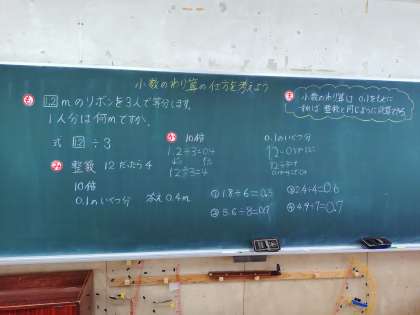 小数のわり算の仕方を考えよう
も 1.2mのリボンを3人で等分します。
1人分は何mですか。
式 1.2÷3
整数 12だったら4
10倍
0.1のいくつ分 答え0.4m
10倍
1.2÷3=0.4
12÷3=4
0.1のいくつ分
12÷3=4
① 1.8÷6=0.3
② 5.6÷8=0.7
③ 2.4÷4=0.6
④ 4.9÷7=0.7
ま 小数のわり算は 0.1をもとに
整数と同じように計算できる